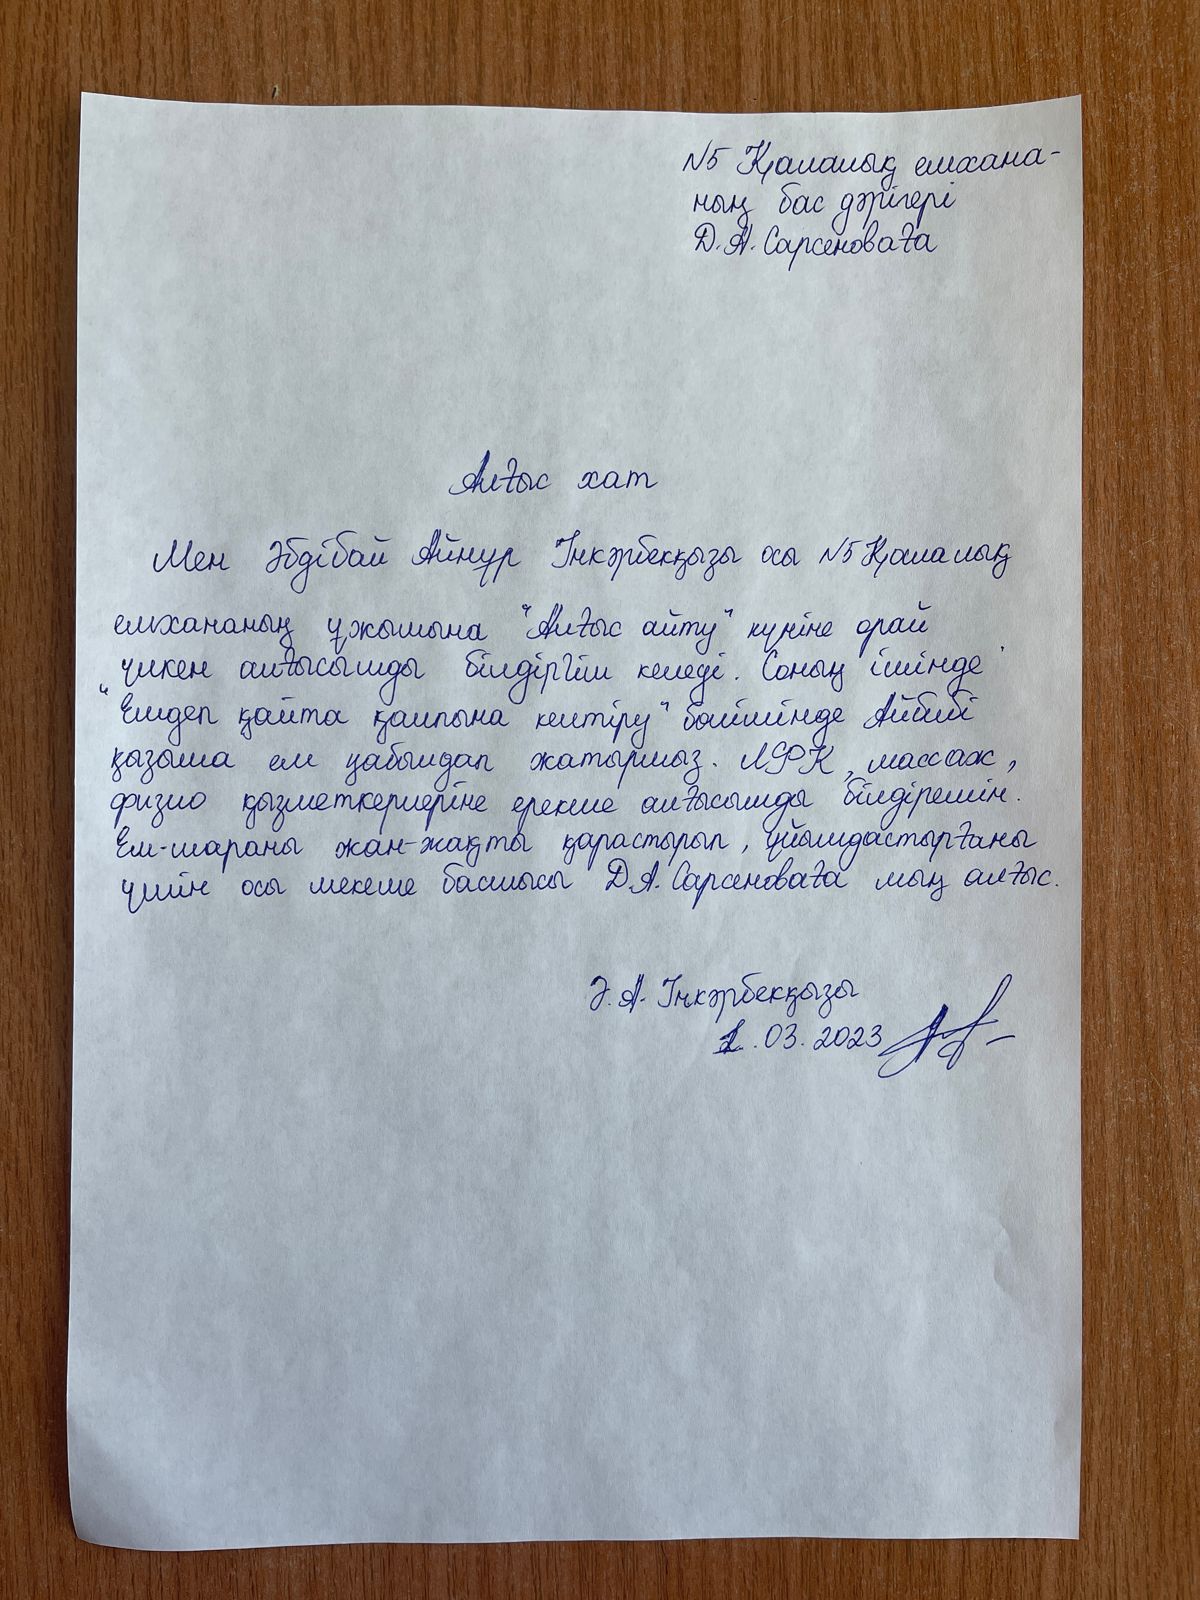 №5 Қалалық емхана-
ның бас дәрігері
Д.А. Сарсеноваға
Алғыс хат
Мен Әбдібай Айнұр Інкәрбекқызы осы №5 Қалалық
емхананың ұжымына "Алғыс айту" күніне орай
үлкен алғысымды білдіргім келеді. Соның ішінде
"Емдеп қайта қалпына келтіру" бөлімінде Айбибі
қызыма ем қабылдап жатырмыз. ЛФК, массаж,
физио қызметкерлеріне ерекше алғысымды білдіремін.
Ем-шараны жан-жақты қарастырып, ұйымдастырғаны
үшін осы мекеме басшысы Д.А. Сарсеноваға мың алғыс.
Ә.А. Інкәрбекқызы
1.03.2023